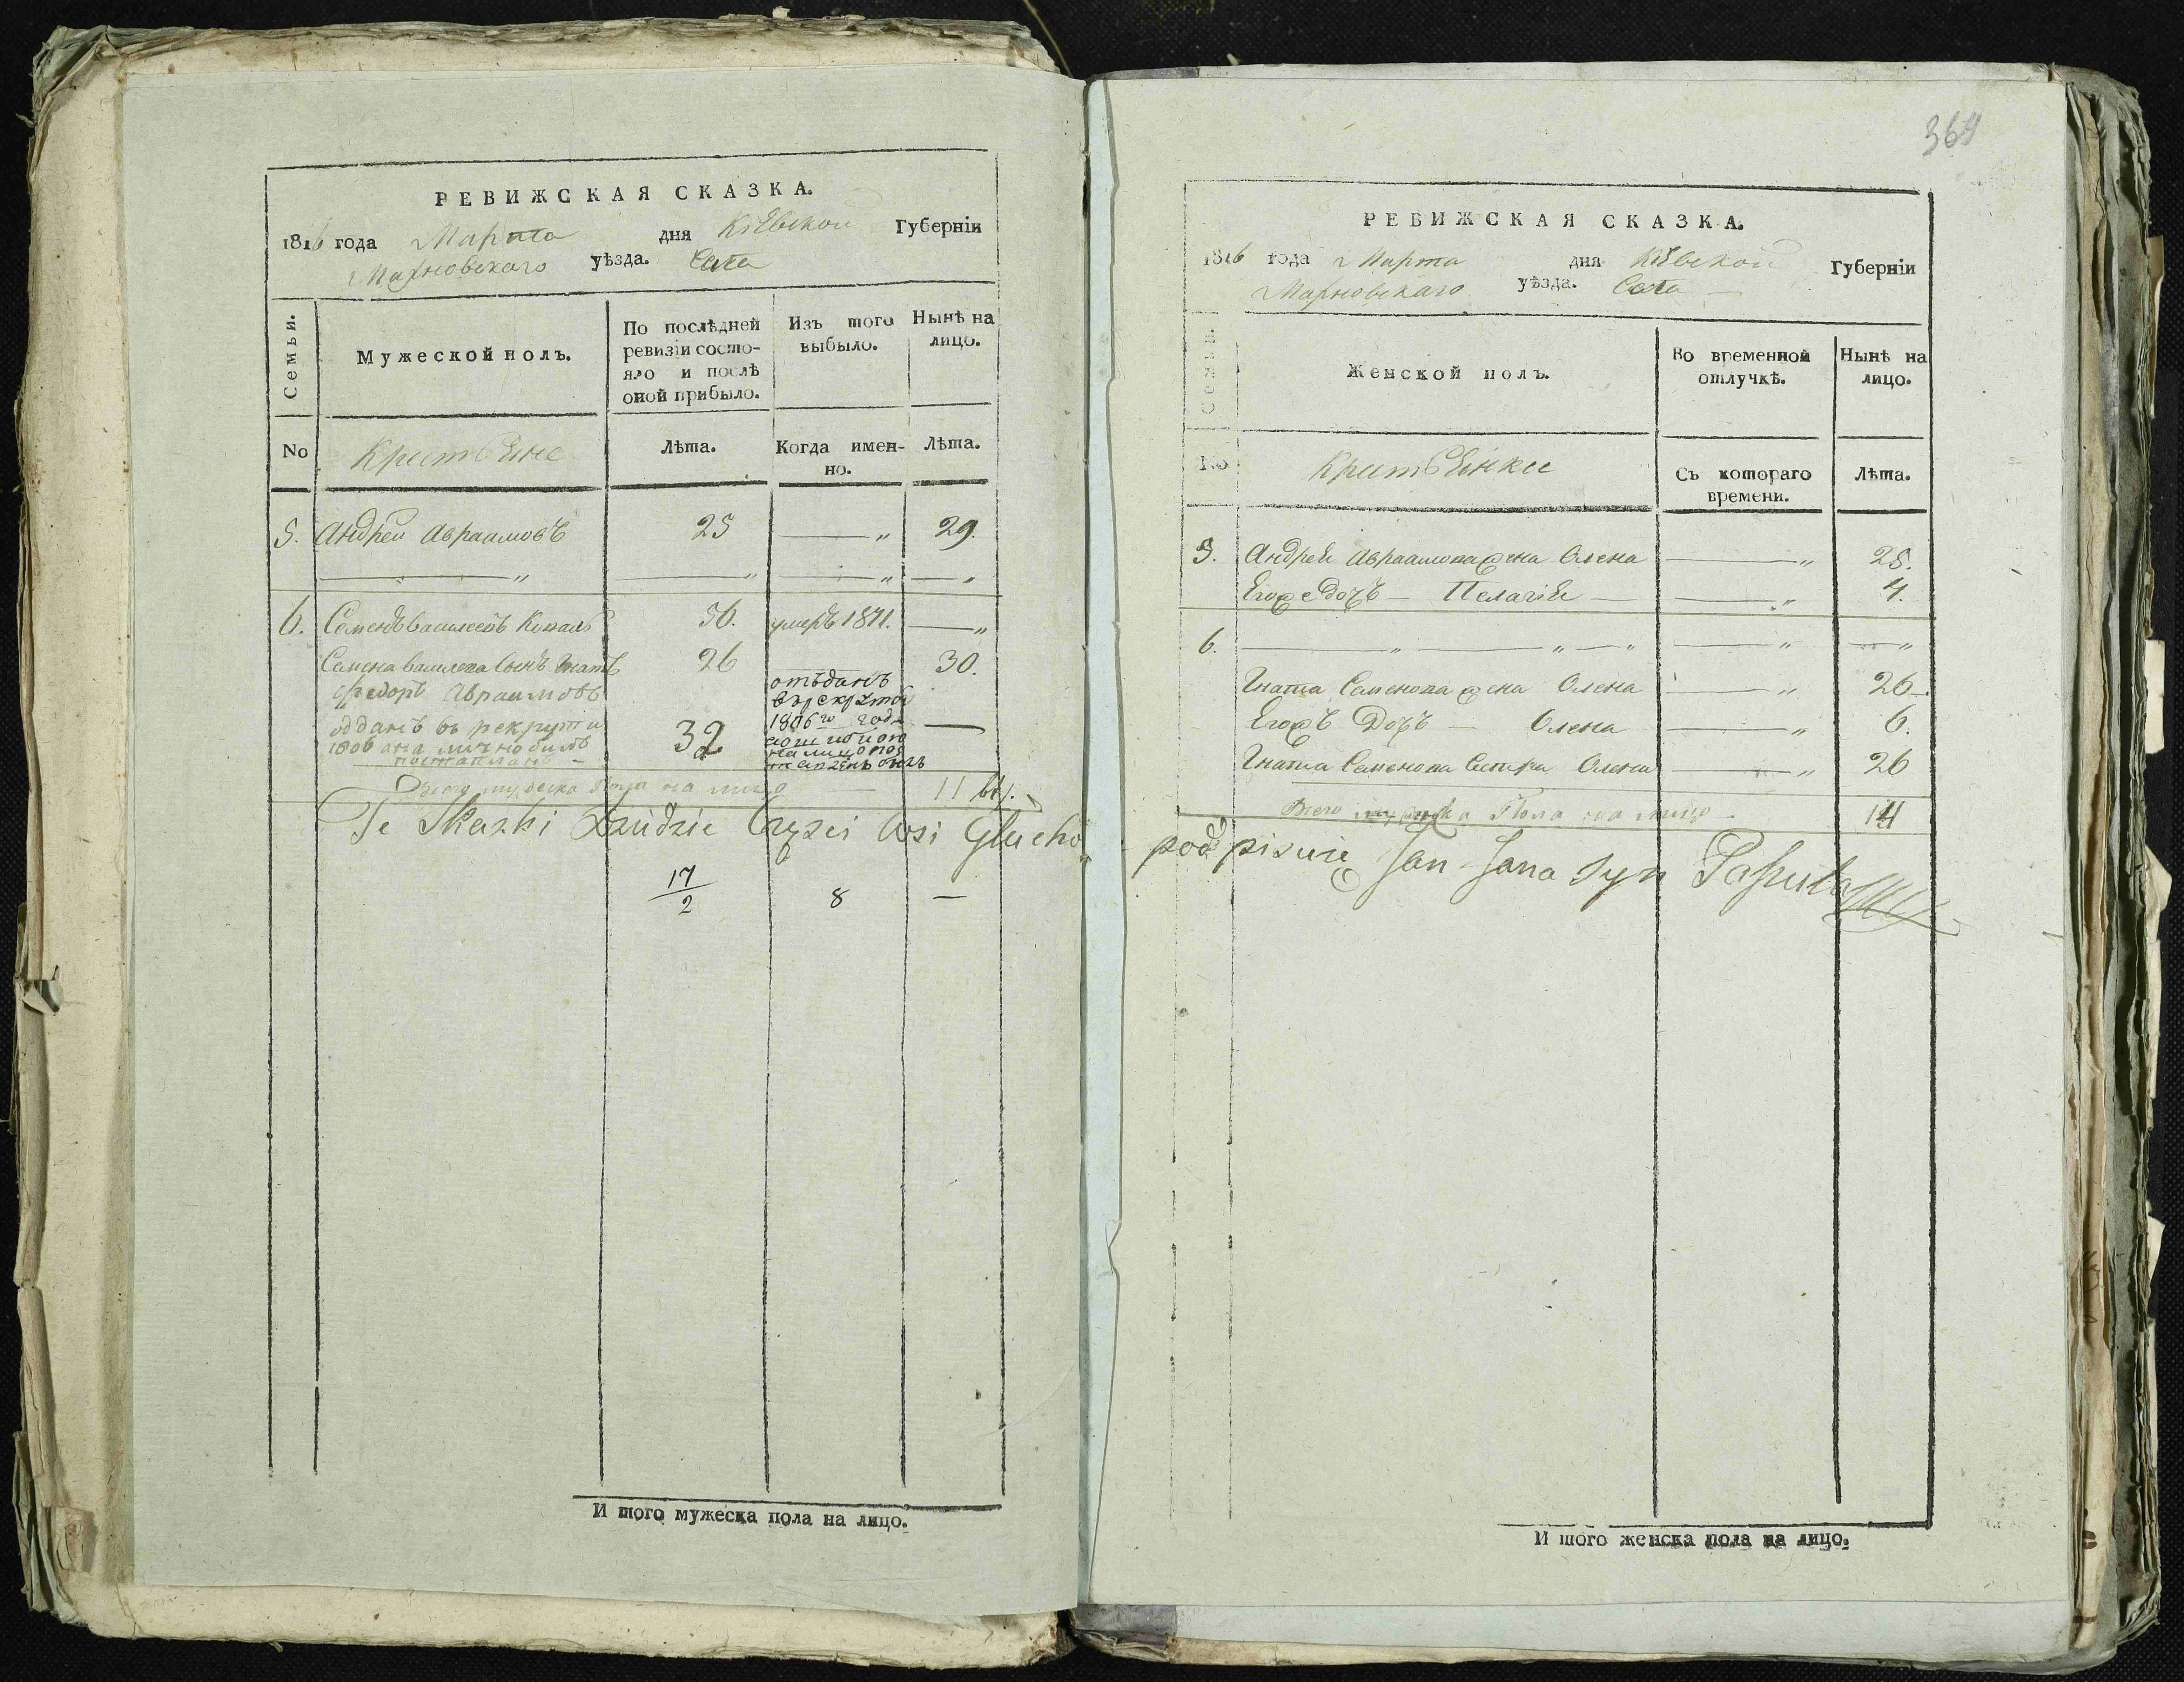 РЕВИЖСКАЯ СКАЗКА.
1816 года Марта дня Кіевской Губерніи
Махновскаго уѣзда. Села
Семьи.
Мужеской полъ.
По послѣдней ревизіи состо-
яло и послѣ
оной прибыло.
Изъ того
выбыло.
Нынѣ на
лицо.
No
Лѣта.
Когда имен-
но.
Лѣта.
5. Андрей Авраамовъ 25 — „ 29.
6. Семенъ Василевъ Коваль 56. умеръ 1811. — „
Семена Василева Сынъ Гнатъ 26 30.
Федоръ Авраамовъ
отъданъ
в рекруты
1806го года
отданъ въ рекрути
1806 32 —
Всего мужеска пола на лицо 11
Te Skazki Ludzie Części Wsi Glucho
17/2 8 —
И того мужеска пола на лицо.
369
РЕВИЖСКАЯ СКАЗКА.
1816 года Марта дня Кіевской Губерніи
Махновскаго уѣзда. Села —
Семьи.
Женской полъ.
Во временной
отлучкѣ.
Нынѣ на
лицо.
No
Съ котораго
времени.
Лѣта.
5. Андрея Авраамова жена Олена — „ 25.
Егоже дочь — Пелагія — — „ 4.
6. — „ — „ — „ — „ — „
Гната Семенова жена Олена — „ 26
Егожъ Дочь — Олена — „ 6.
Гната Семенова Сестра Олена — „ 26
Всего пола на лицо 14
podpisuię Jan Jana Syn
И того женска пола на лицо.